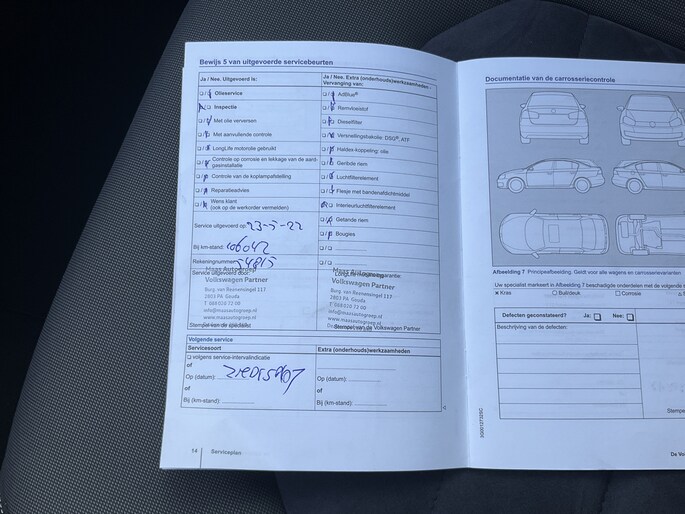 Bewijs 5 van uitgevoerde servicebeurten
Ja / Nee. Uitgevoerd is:
Ja / Nee. Extra (onderhouds)werkzaamheden
Vervanging van:
Olieservice
AdBlue®
Inspectie
Remvloeistof
Met olie verversen
Dieselfilter
Met aanvullende controle
Versnellingsbakolie: DSG®, ATF
LongLife motorolie gebruikt
Haldex-koppeling: olie
Controle op corrosie en lekkage van de aard-
gasinstallatie
Geribde riem
Controle van de koplampafstelling
Luchtfilterelement
Reparatieadvies
Flesje met bandenafdichtmiddel
Wens klant
(ook op de werkorder vermelden)
Interieurluchtfilterelement
Getande riem
Service uitgevoerd op: 23-5-22
Bougies
Bij km-stand: 106042
Rekeningnummer: 54815
Service uitgevoerd door:
LongLife mobiliteitsgarantie:
Maas Autogroep
Volkswagen Partner
Burg. van Reenensingel 117
2803 PA Gouda
info@maasautogroep.nl
www.maasautogroep.nl
Maas Autogroep
Volkswagen Partner
Burg. van Reenensingel 117
2803 PA Gouda
info@maasautogroep.nl
www.maasautogroep.nl
Stempel van de Volkswagen Partner
Volgende service
Servicesoort
Extra (onderhouds)werkzaamheden
volgens service-intervalindicatie
of
Op (datum):
Op (datum):
of
of
Bij (km-stand):
Bij (km-stand):
14
Serviceplan
Documentatie van de carrosseriecontrole
Afbeelding 7 Principeafbeelding. Geldt voor alle wagens en carrosserievarianten
Uw specialist markeert in Afbeelding 7 beschadigde onderdelen met de volgende
× Kras
Buil/deuk
Corrosie
Defecten geconstateerd?
Ja:
Nee:
Beschrijving van de defecten:
Stempe
De Vo